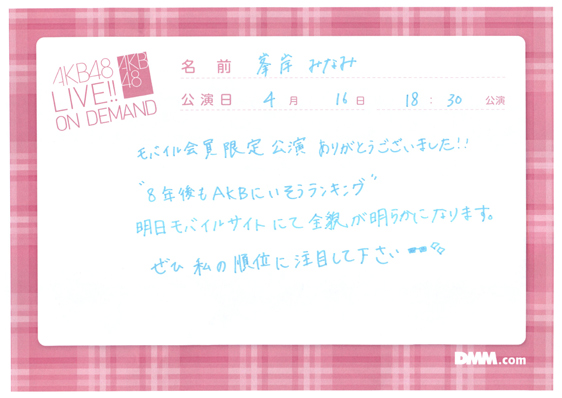 AKB48
LIVE!!
ON DEMAND
AKB
48
名 前 峯岸 みなみ
公演日 4 月 16 日 18 : 30 公演
モバイル会員限定公演 ありがとうございました!!
"8年後もAKBにいそうランキング"
明日モバイルサイトにて全貌が明らかになります。
ぜひ 私の順位に注目して下さい
DMM.com